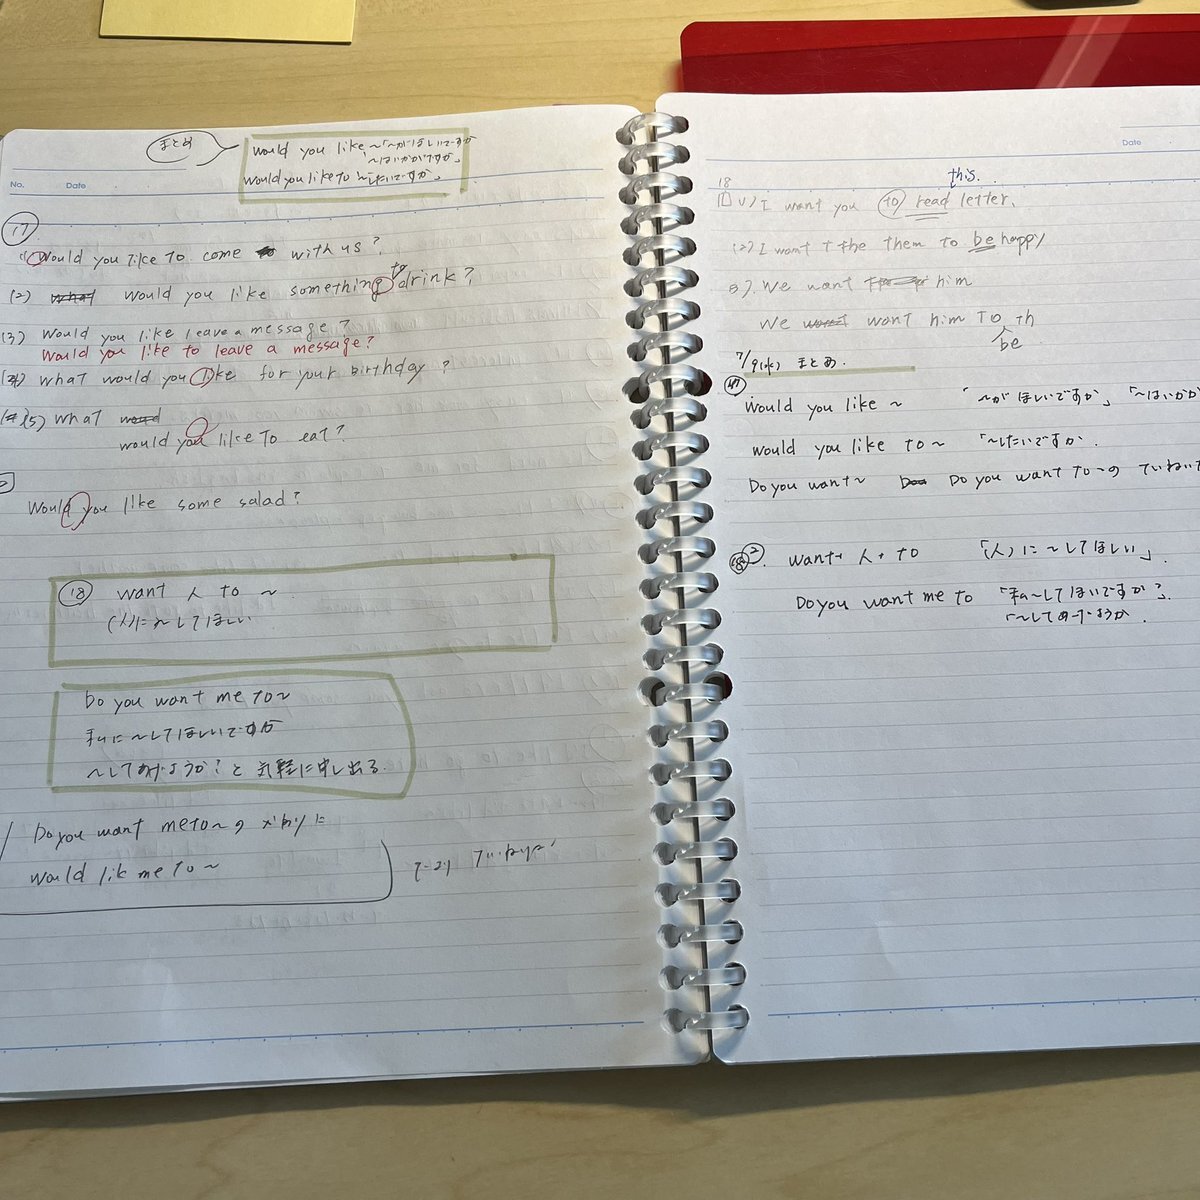 まとめ
would you like ~「~がほしいですか
~はいかがですか」
would you like to ~したいですか」
No.
Date
17
(1) Would you like to come with us?
(2) would you like something to drink?
(3) Would you like leave a message?
Would you like to leave a message?
(4) What would you like for your birthday?
(5) What
would you like to eat?
Would you like some salad?
18 want 人 to ~
(人)に~してほしい
Do you want me to~
私に~してほしいですか
~してあげようか?と気軽に申し出る.
Do you want me to~の 代わりに
Would lik me to ~
Date
18
this.
(1) I want you to read letter.
(2) I want the them to be happy
3). We want him
We want him to th
be
7/9(水) まとめ.
17
Would you like ~ 「~がほしいですか」「~はいかが
would you like to~ 「~したいですか.
Do you want~ Do you want to~の ていねい
want+人+to 「(人)に~してほしい」.
Do you want me to 「私~してほいですか?
「~してあげようか.